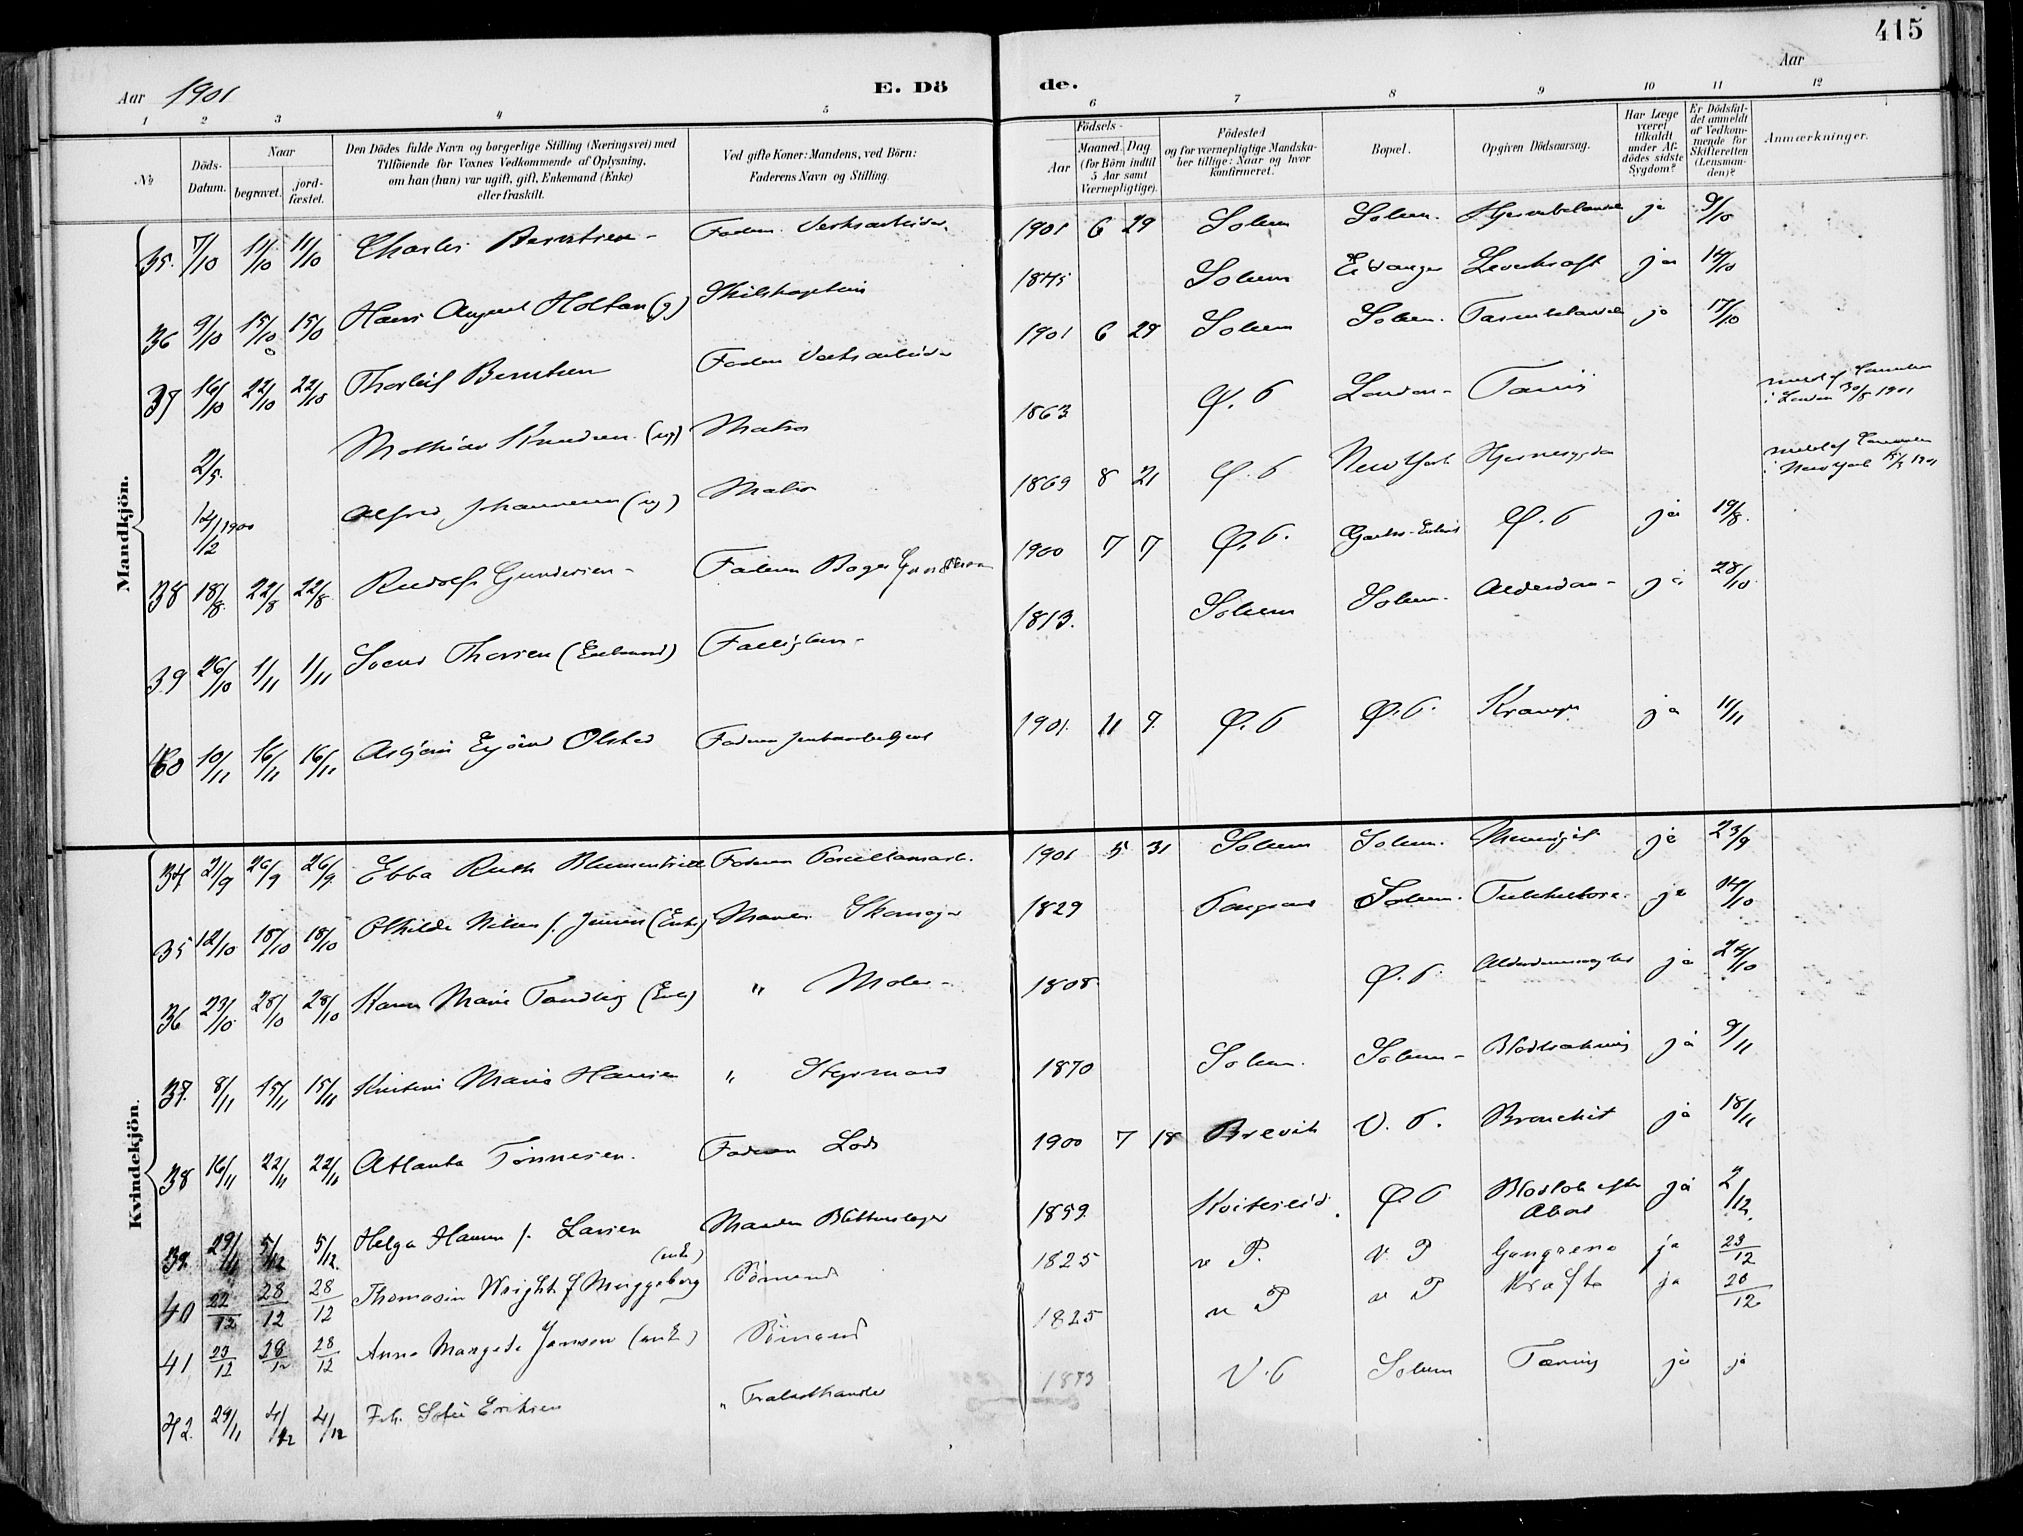 415
Aar 1901
E. Döde.
Aar
1 2 3 4 5 6 7 8 9 10 11 12
No
Döds-Datum.
Naar
begravet.
jordfæstet.
Den Dödes fulde Navn og borgerlige Stilling (Næringsvei) med
Tilföiende for Voxnes Vedkommende af Oplysning,
om han (hun) var ugift, gift, Enkemand (Enke)
eller fraskilt.
Ved gifte Koner: Mandens, ved Börn:
Faderens Navn og Stilling.
Födsels-
Aar
Maaned. Dag
(for Börn indtil
5 Aar samt
Værnepligtige).
Födested
og for værnepligtige Mandska-
ber tillige: Naar og hvor
konfirmeret.
Bopæl.
Opgiven Dödsaarsag.
Har Læge
været
tilkaldt
under Af-
dödes sidste
Sygdom?
Er Dödsfal-
det anmeldt
af Vedkom-
mende for
Skifteretten
(Lensman-
den)?
Anmærkninger.
Mandkjön.
35. 7/10 11/10 11/10 Charles Berntsen - Faderen Verksarbeider 1901 6 29 Solum Solum. ja 9/10
36 9/10 15/10 15/10 Hans August Holtan (g) Skibskaptein 1875 Solum Eidanger ja 14/10
37 16/10 22/10 22/10 Thorleif Berntsen Faderen Verksarbeider 1901 6 29 Solum Solum. ja 17/10
2/5. Mathias Knudsen (ug) Matros 1863 Ø. P London - Tæring
i London 30/8 1901
12/12 1900 Alfred Johannesen (ug) Matros 1869 8 21 Ø. P New York
i New York 1901
38 18/8 22/8 22/8 Rudolf Gundersen - Faderen Bager Gundersen 1900 7 7 Ø. P. Ø. P ja 19/8.
39 26/10 1/11 1/11 Thorsen (Enkemand) 1813. Solum Solum. Alderdom - ja 28/10
40 10/11 16/11 16/11 Olsted Faderen 1901. 11 9 Ø. P Ø. P. Krampe ja 11/11
Kvindekjön.
34. 21/9 26/9 26/9 Ebba Ruth Blumentritt Faderen Porcellænsarb. 1901 5 31 Solum Solum. ja 23/9
35 12/10 18/10 18/10 Othilde Nilsen f. Jensen (Enke) Manden Skomager 1829 Porsgrund Solum. ja 14/10
36 23/10 28/10 28/10 Karen Marie Tandberg (Enke) " Maler - 1808 Ø. P. ja 24/10
37. 8/11 15/11 15/11 Kristine Marie Hansen " Styrmand 1870 Solum. Solum - ja 9/11
38 16/11 22/11 22/11 Atlanta Tønnesen. Faderen Lods 1900 7 18 Brevik V. P. Bronchit ja 18/11
39. 29/11 5/12 5/12. Helga Hansen f. Larsen Manden Blikkenslager 1859. Kviteseid. Ø. P Blodtab efter Abort ja 2/12.
40 22/12 28/12 28/12 Thomasine Wright f Muggeborg (enke) Sömand 1825 v P. v. P Gangrena ja 23/12
41 23/12 28/12 28/12 Anna Margrete Jansen (enke) Sömand 1825 v P v P Kræft ja 28/12
42. 29/11 4/12 4/12 Frk. Sofie Eriksen " 1873 V. P Solum Tæring ja ja